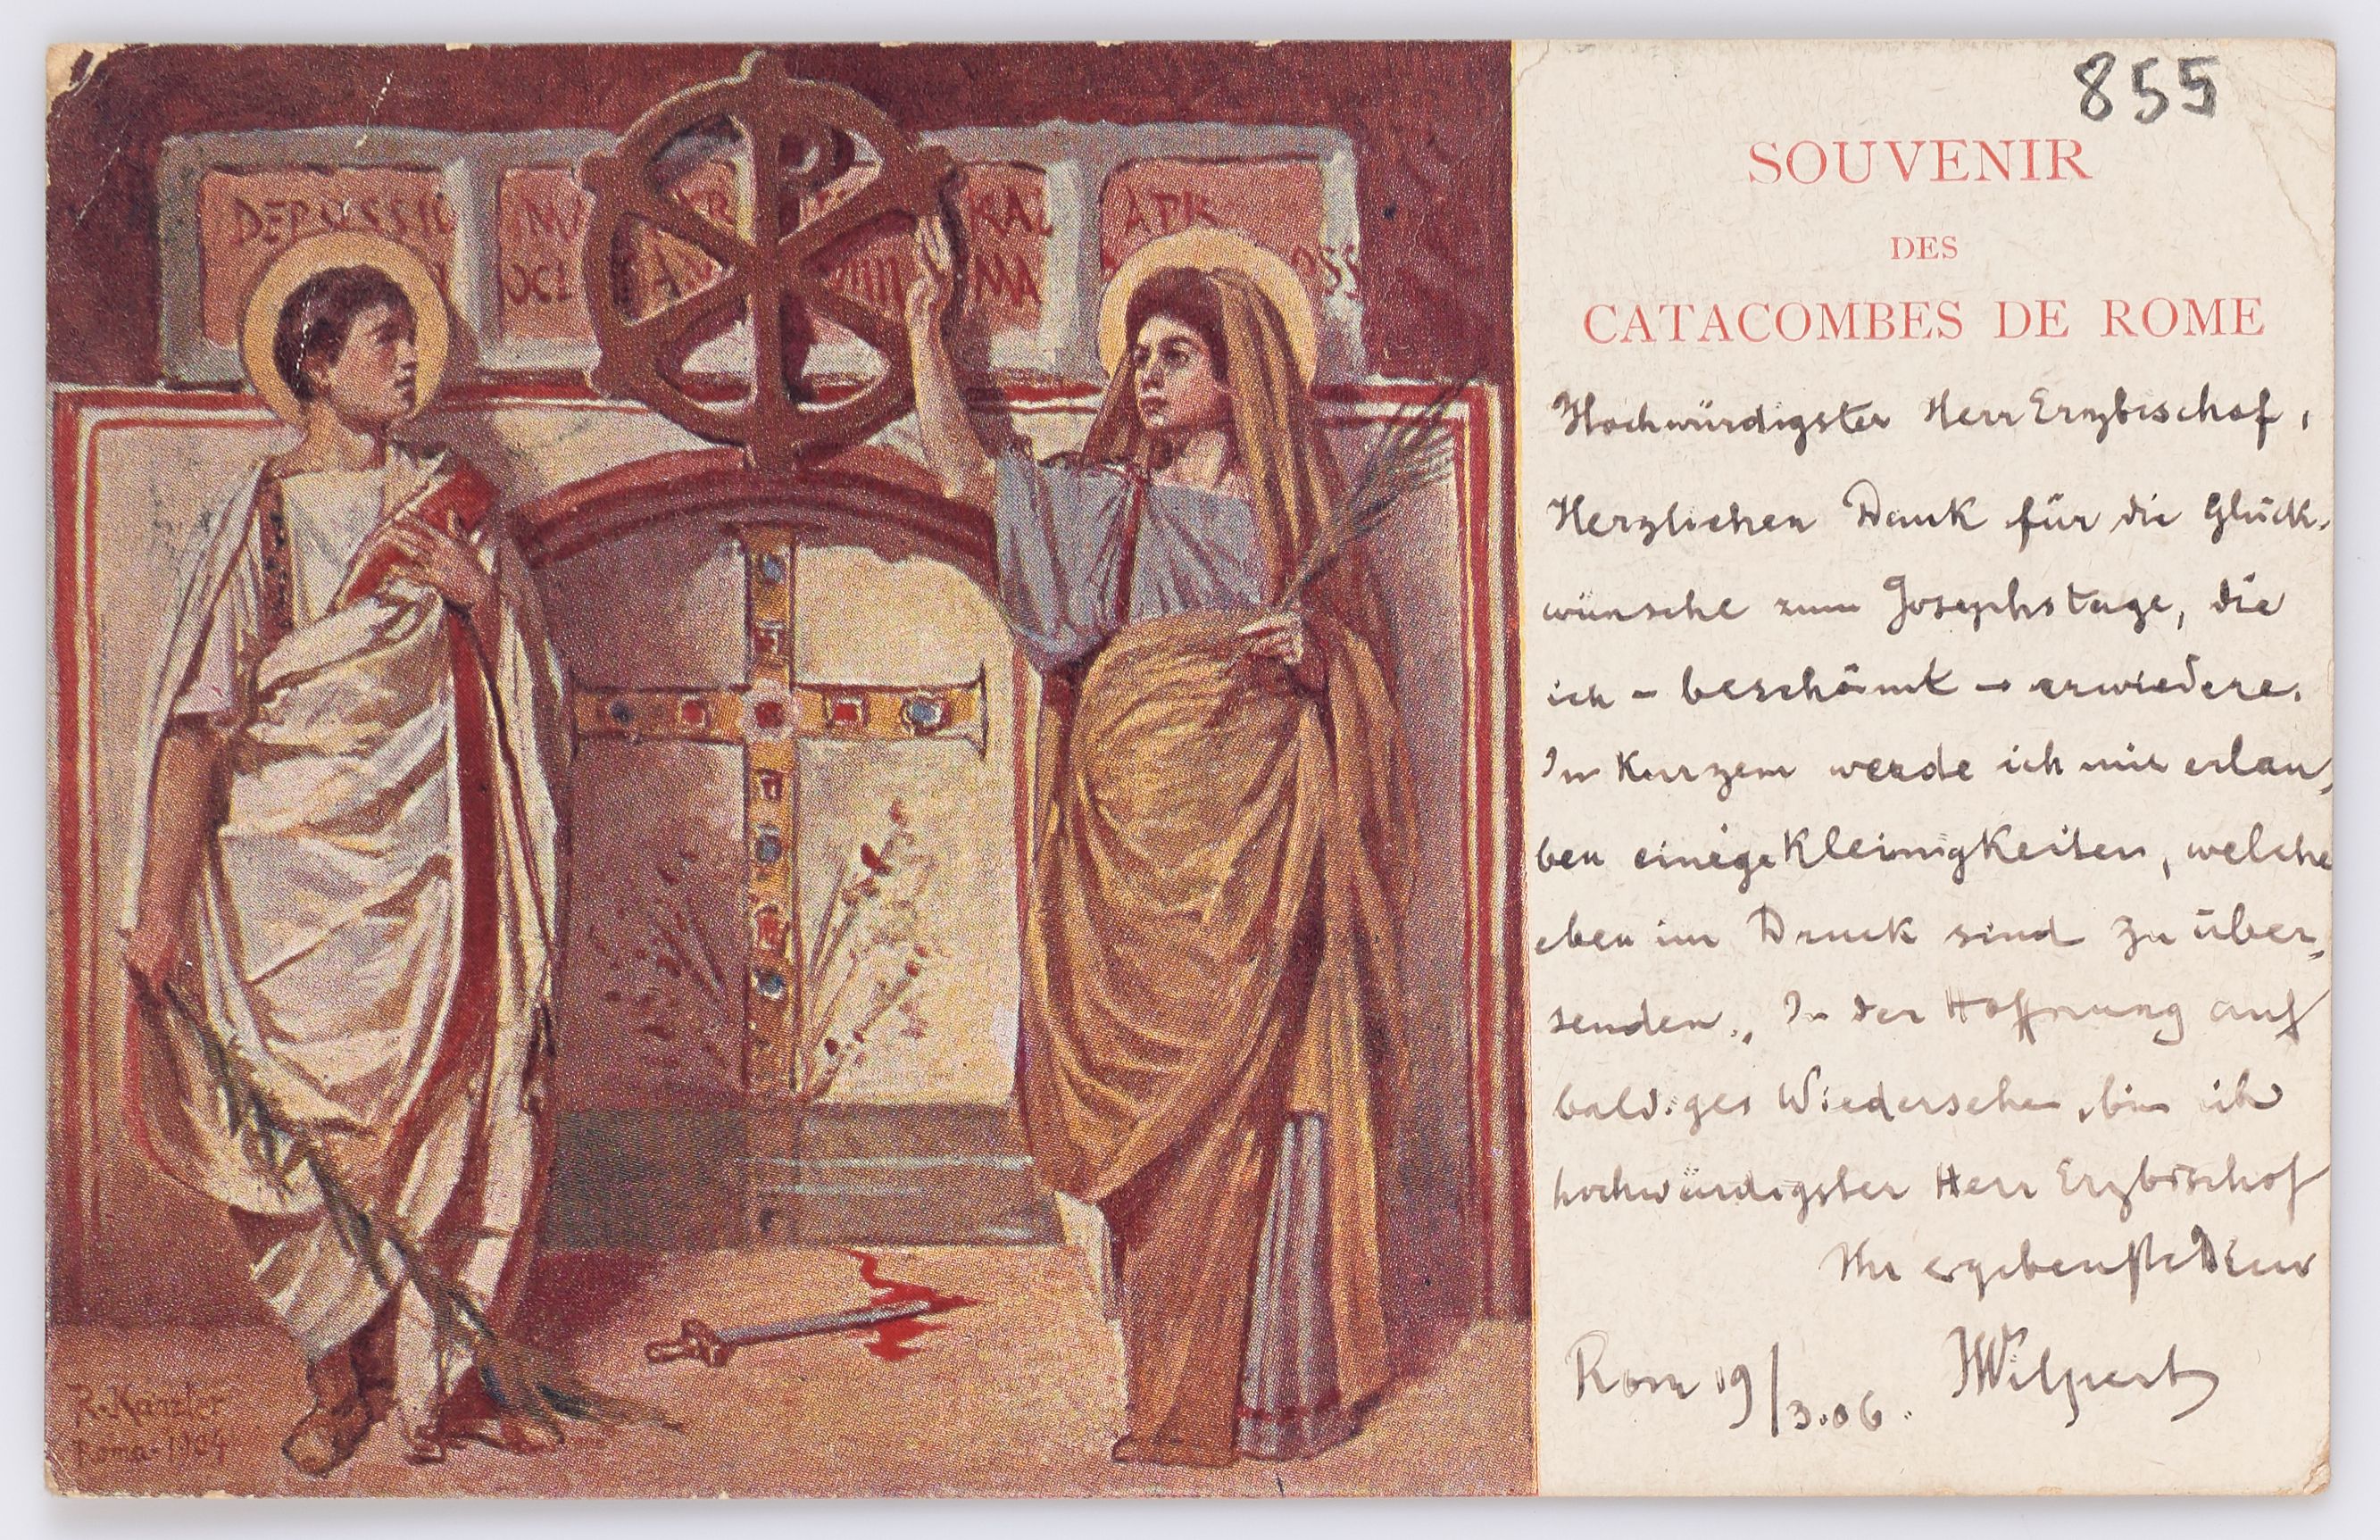 855
SOUVENIR
DES
CATACOMBES DE ROME
Hochwürdigster Herr Erzbischof,
Herzlichen Dank für die Glück-
wünsche zum Josephstage, die
ich – beschämt – erwiedere.
In Kurzem werde ich mir erlau-
ben einige Kleinigkeiten, welche
eben im Druck sind zu über-
senden. In der Hoffnung auf
baldiges Wiedersehen, bin ich
hochwürdigster Herr Erzbischof
Ihr ergebenster Diener
Rom 19/3.06. JWilpert
DEPOSSIO KAL APR
MA OSS
R. Kanzler
Roma - 1904